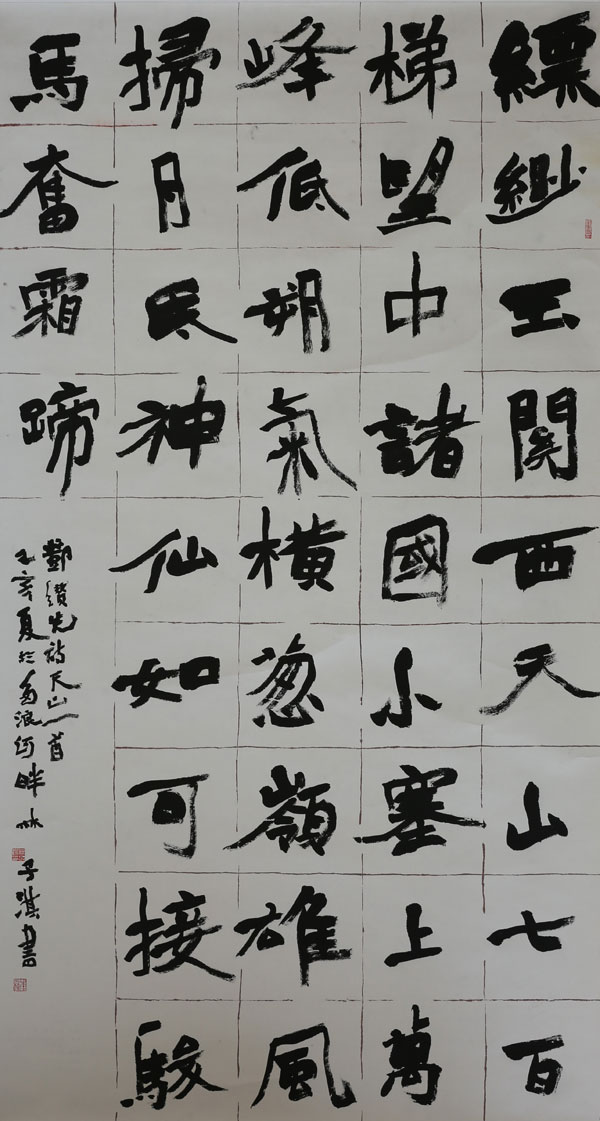 縹緲玉関西天山七百
梯望中諸國小塞上萬
峰低朔氣橫葱嶺雄風
掃月氏神仙如可接駿
馬奮霜蹄
鄧纘先詩天山一首
己亥夏於多浪河畔林子淇書